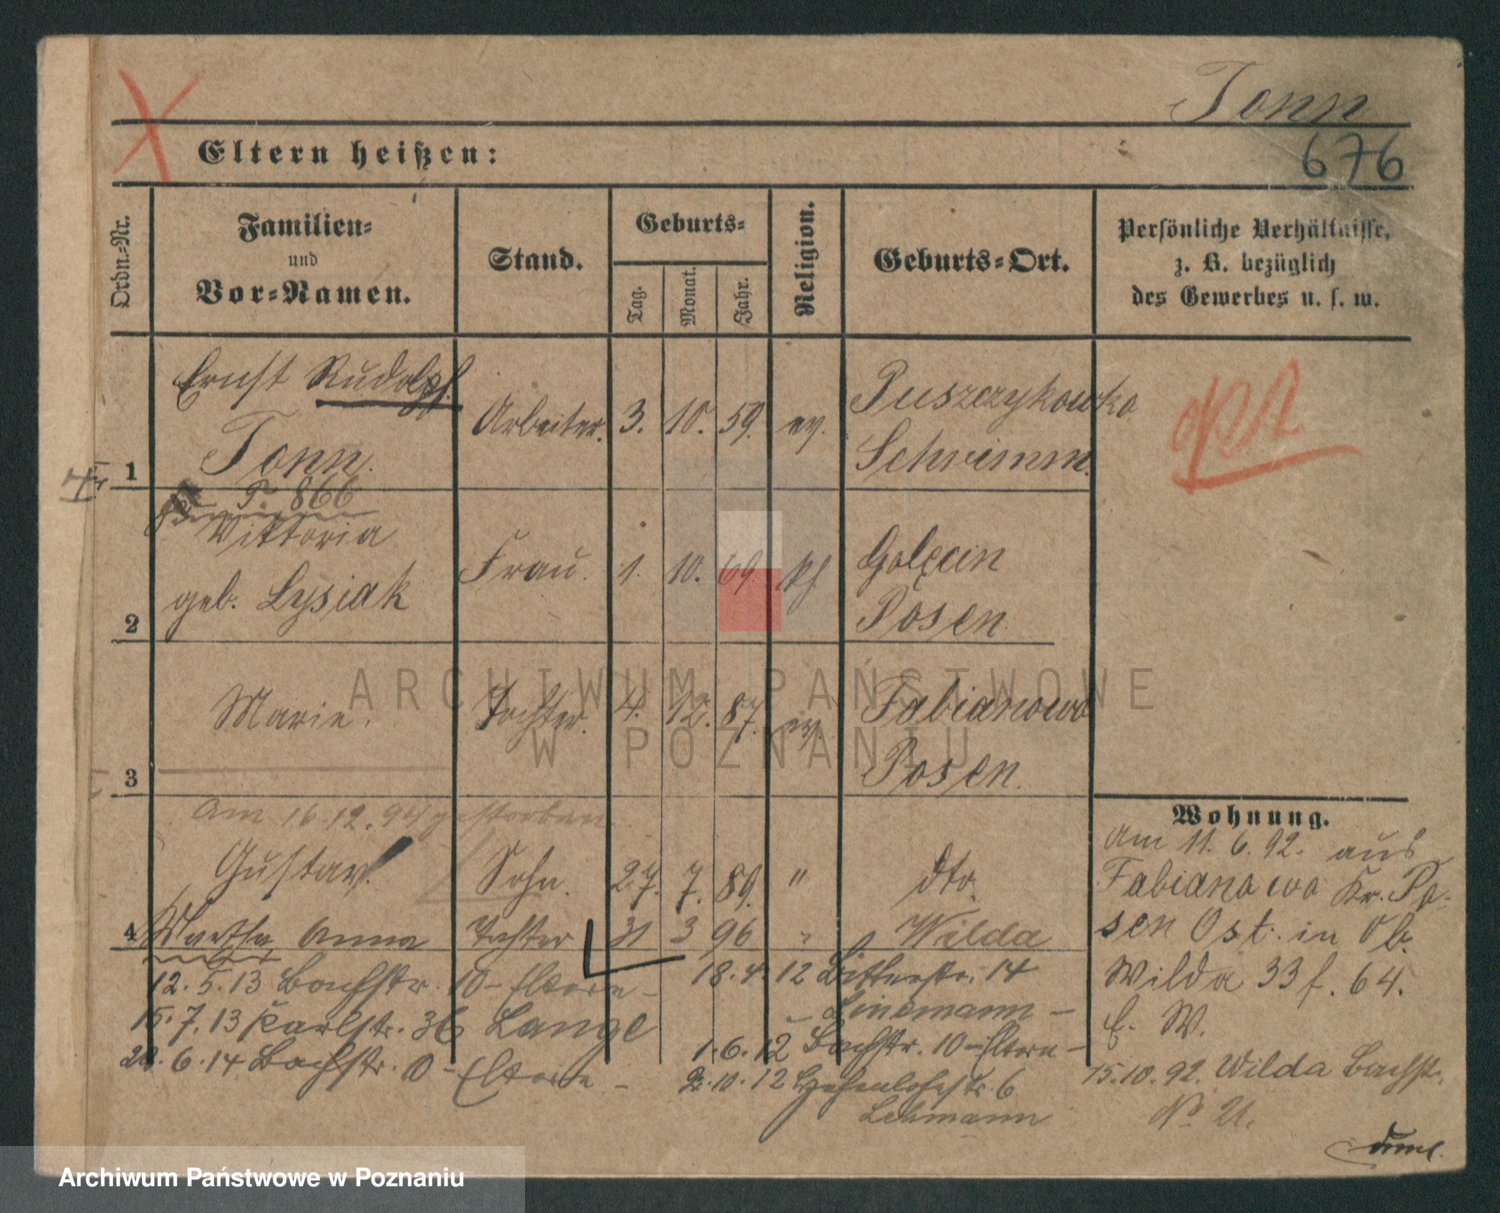 Tonn
676
Eltern heißen:
Ordn.-Nr.
Familien-
und
Vor-Namen.
Stand.
Geburts-
Tag.
Monat.
Jahr.
Religion.
Geburts-Ort.
Persönliche Verhältnisse,
z. B. bezüglich
des Gewerbes u. s. w.
Ernst Rudolph
Tonn.
1
Arbeiter. 3. 10. 59. ev.
Puszczykowko
Schrimm.
P. 866
Viktoria
geb. Lysiak
2
Frau. 1. 10. 69. kh.
Golęcin
Posen
Marie.
3
Tochter. 4. 12. 87. ev.
Fabianowo
Posen.
Am 16.12.94 gestorben
Gustav. Sohn. 27. 7. 89. " dto.
4
Martha Anna Tochter 31 3 96 " Wilda
12.5.13 Bachstr. 10 - Eltern -
15.7.13 Karlstr. 36 Lange
22.6.14 Bachstr. - Eltern -
18.4.12 Bitterstr. 14
Linemann -
1.6.12 Bachstr. 10 - Eltern -
2.10.12 Hohenlohestr. 6
Lehmann
Wohnung.
Am 11.6.92. aus
Fabianowo Kr. Po-
sen Ost. in Ob.
Wilda 33f. 64.
E. W.
15.10.92. Wilda Bachstr.
No 21.
ARCHIWUM PAŃSTWOWE
W POZNANIU
Archiwum Państwowe w Poznaniu